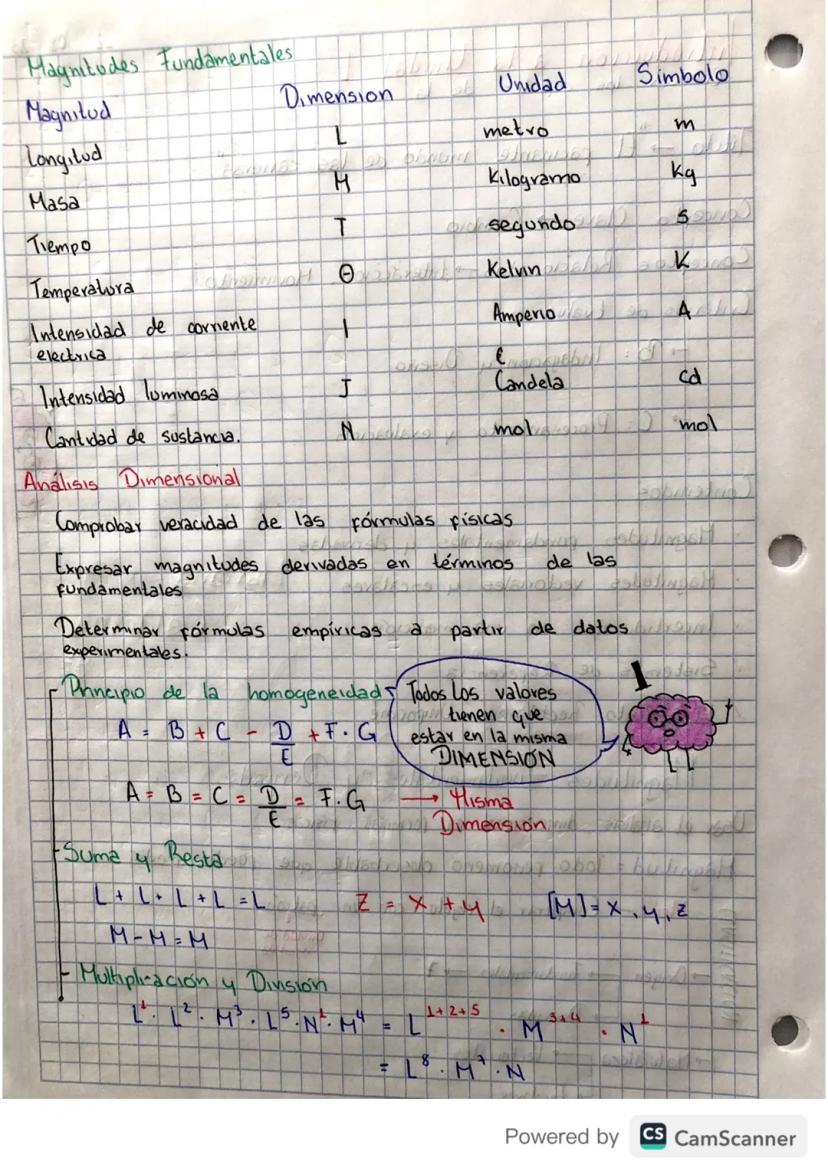 Magnitudes Fundamentales
Magnitud Dimension Unidad Simbolo
Longitud L metro m
Masa M Kilogramo Kg
Tiempo T segundo s
Temperatura Θ Kelvin K
Intensidad de corriente I Amperio A
electrica
Intensidad luminosa J Candela cd
Cantidad de sustancia. N mol mol
Análisis Dimensional
Comprobar veracidad de las fórmulas físicas
Expresar magnitudes derivadas en términos de las
fundamentales
Determinar fórmulas empíricas a partir de datos
experimentales.
Principio de la homogeneidad
Todos los valores
tienen que
estar en la misma
DIMENSIÓN
A = B + C - D/E + F · G
A = B = C = D/E = F · G → Misma
Dimensión
Suma y Resta
L + L + L + L = L Z = X + Y [M] = X, Y, Z
M - M = M
Multiplicación y División
L¹ · L² · M³ · L⁵ · N¹ · M⁴ = L¹⁺²⁺⁵ · M³⁺⁴ · N¹
= L⁸ · M⁷ · N
Powered by CS CamScanner